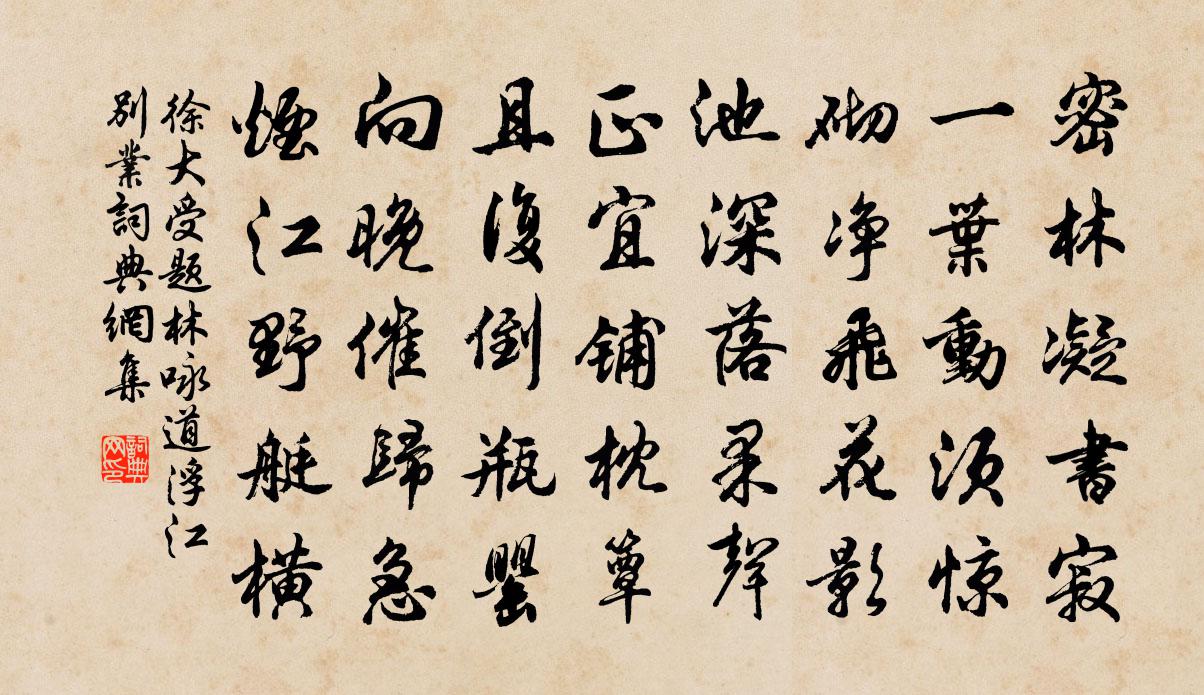 密林凝書寂
一葉動須惊
砌净飛花影
池深落果聲
正宜鋪枕簟
且復倒瓶罌
向晚催歸急
煙江野艇橫
徐大受题林咏道浮江
別業詞典網集
詞典网印